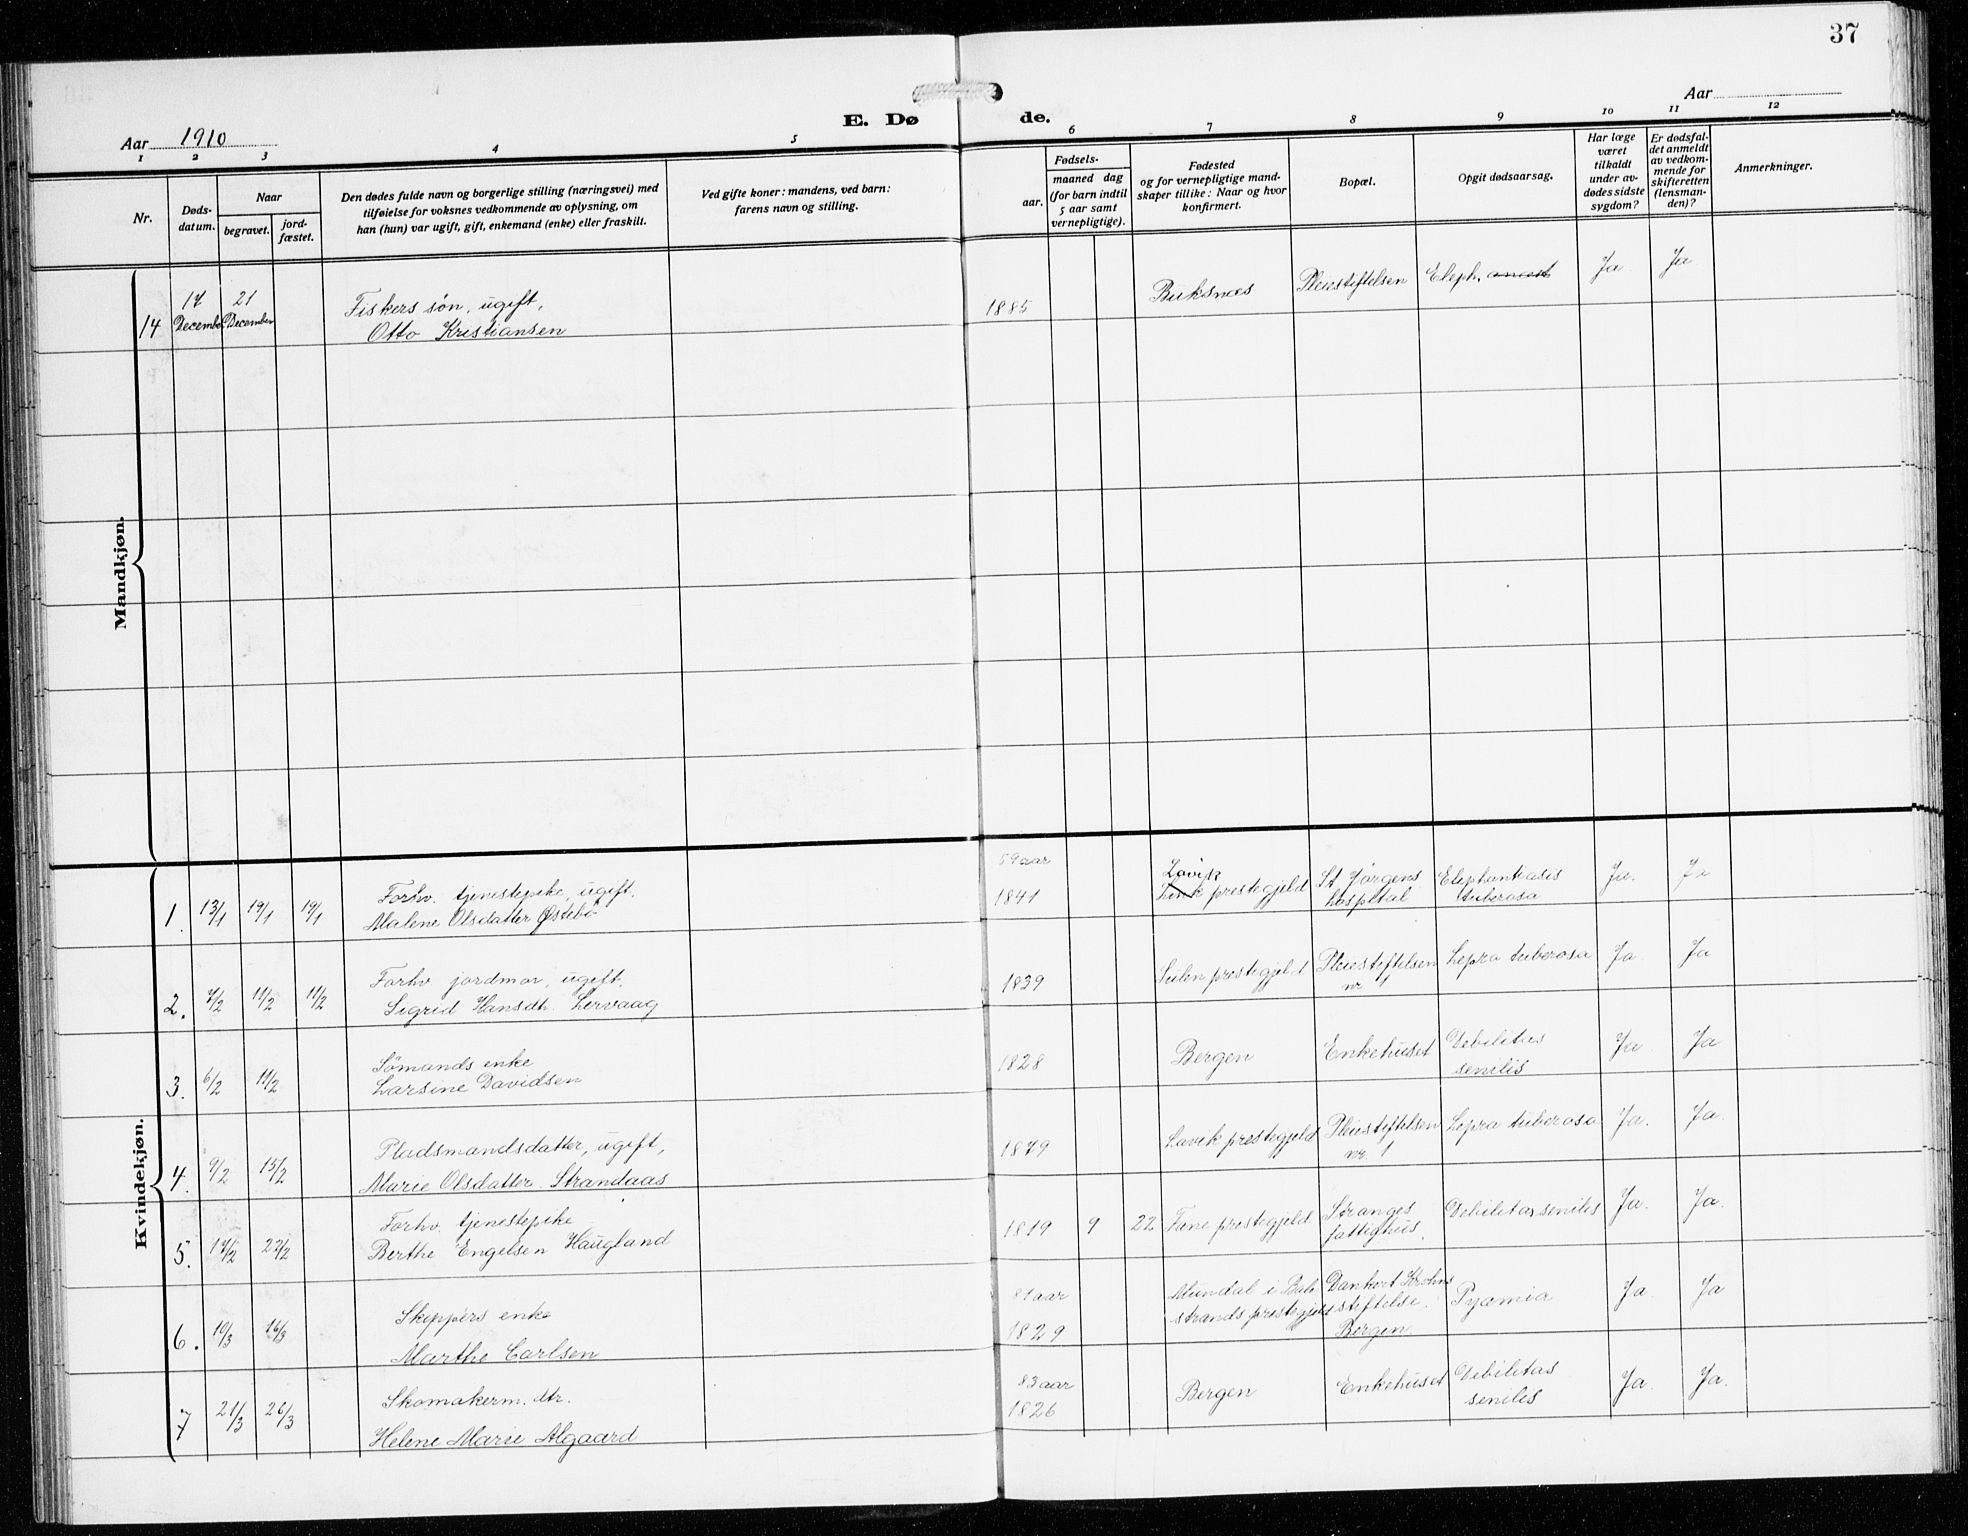 37
E. Dø
de.
Aar 1910
Aar
1 2 3 4 5 6 7 8 9 10 11 12
Nr.
Døds-
datum.
Naar
begravet.
jord-
fæstet.
Den dødes fulde navn og borgerlige stilling (næringsvei) med
tilføielse for voksnes vedkommende av oplysning, om
han (hun) var ugift, gift, enkemand (enke) eller fraskilt.
Ved gifte koner: mandens, ved barn:
farens navn og stilling.
Fødsels-
aar.
maaned dag
(for barn indtil
5 aar samt
vernepligtige).
Fødested
og for vernepligtige mand-
skaper tillike: Naar og hvor
konfirmert.
Bopæl.
Opgit dødsaarsag.
Har læge
været
tilkaldt
under av-
dødes sidste
sygdom?
Er dødsfal-
det anmeldt
av vedkom-
mende for
skifteretten
(lensman-
den)?
Anmerkninger.
Mandkjøn.
14
17
December
21
December
Fiskers søn, ugift,
Otto Kristiansen
1885
Buksnæs
Pleiestiftelsen
Eleph.
Ja
Ja
Kvindekjøn.
1.
13/1
19/1
19/1
Forhv. tjenestepike, ugift.
Malene Olsdatter Østebø
59 aar
1841
Lavik
prestegjeld
St Jørgens
hospital
Elephantiasis
tuberosa
Ja.
Ja
2.
7/2
11/2
11/2
Forhv jordmor, ugift.
Sigrid Hansdtr. Lervaag
1839
Sulen prestegjeld
Pleiestiftelsen
nr 1
Lepra tuberosa
Ja
Ja
3.
6/2
11/2
Sømands enke
Larsine Davidsen
1828
Bergen
Enkehuset
Debilitas
senilis
Ja
Ja
4.
9/2
15/2
Pladsmandsdatter, ugift,
Marie Olsdatter Strandaas
1879
Lavik prestegjeld
Pleiestiftelsen
nr. 1
Lepra tuberosa
Ja.
Ja.
5.
17/2
22/2
Forhv. tjenestepike
Berthe Engelsen Haugland
1819
9
22
Fane prestegjeld
Stranges
fattighus.
Debilitas senilis
Ja.
Ja.
6.
10/3
16/3
Skippers enke
Marthe Carlsen
81 aar
1829
Mundal i Bale
strands prestegjeld
Dankert Krohns
stiftelse.
Bergen
Pyæmia
Ja.
Ja
7
21/3
26/3
Skomakerm. dtr.
Helene Marie Algaard
83 aar
1826
Bergen
Enkehuset
Debilitas
senilis
Ja.
Ja.